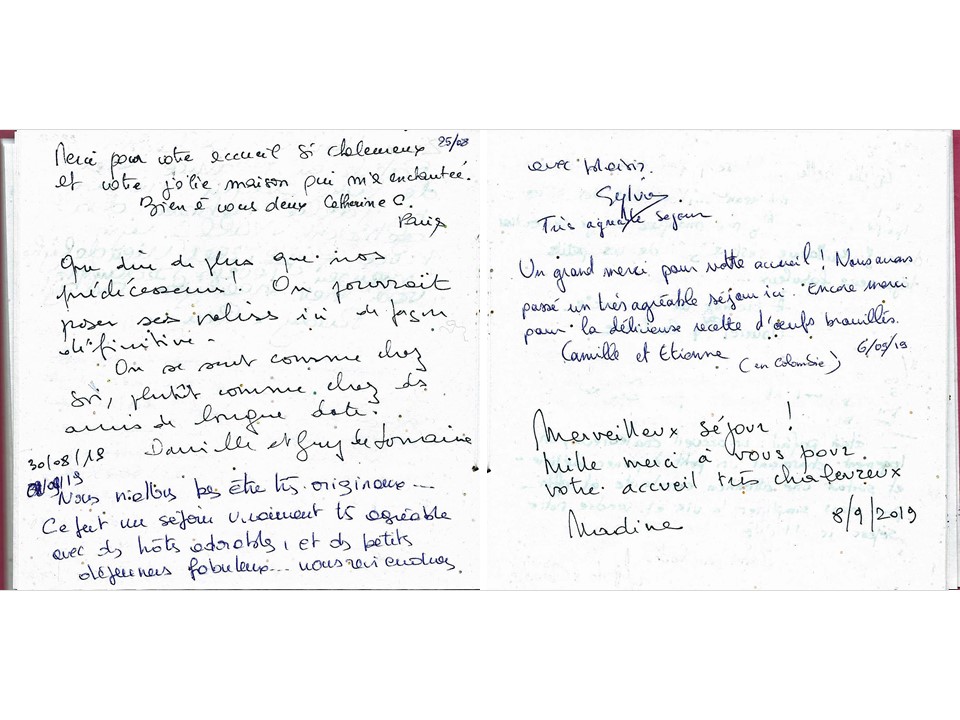 25/08
Merci pour votre accueil si chaleureux
et votre jolie maison qui m'a enchantée.
Bien à vous deux Catherine C.
Paris
Que dire de plus que nos
prédécesseurs! On pourrait
poser ses valises ici de façon
définitive.
On se sent comme chez
soi, plutôt comme chez des
amis de longue date.
Danielle et Guy de Lorraine
30/08/18
01/09/19
Nous n'allons pas être très originaux...
Ce fut un séjour vraiment ts agréable
avec des hôtes adorables, et des petits
déjeuners fabuleux... nous reviendrons
avec plaisir.
Sylvie
Très agréable sejour
Un grand merci pour votre accueil! Nous avons
passé un très agréable séjour ici. Encore merci
pour la délicieuse recette d'œufs brouillés.
Camille et Etienne (en Colombie) 6/09/19
Merveilleux séjour!
Mille merci à vous pour
votre accueil très chaleureux
Nadine 8/9/2019